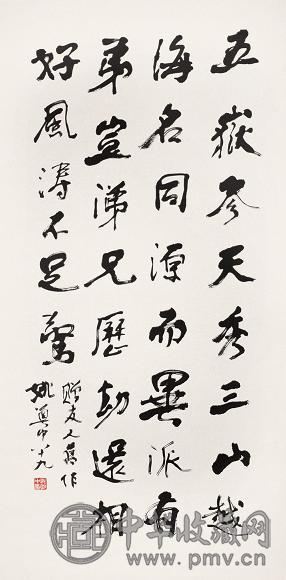 五嶽參天秀三山越
海名同源而異派有
弟豈兄歷劫還相
好風濤不足驚
贈友人舊作
姚奠中八十九
中华收藏网
www.pmv.cn